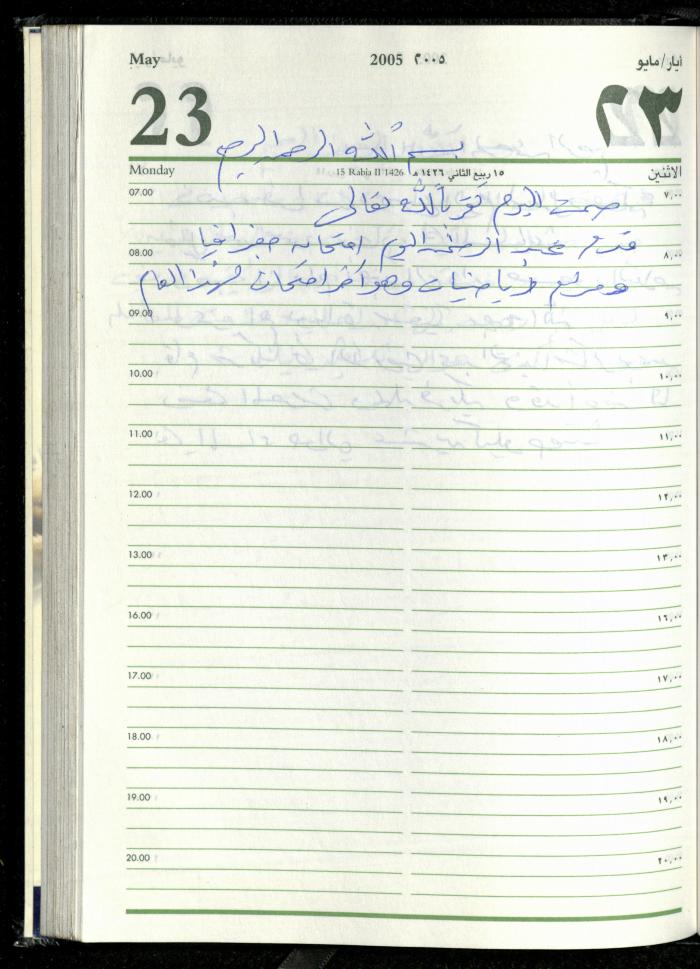 May 2005 ٢٠٠٥ أيار/مايو
23 ٢٣
بسم الله الرحمن الرحيم
Monday 15 Rabia II 1426 ١٥ ربيع الثاني ١٤٢٦ هـ الاثنين
07.00 ٧,٠٠
صمت اليوم تقرباً لله تعالى
قدم محمد اليوم امتحان جغرافيا
08.00 ٨,٠٠
ومربع رياضيات وهو آخر امتحان لهذا العام
09.00 ٩,٠٠
10.00 ١٠,٠٠
11.00 ١١,٠٠
12.00 ١٢,٠٠
13.00 ١٣,٠٠
16.00 ١٦,٠٠
17.00 ١٧,٠٠
18.00 ١٨,٠٠
19.00 ١٩,٠٠
20.00 ٢٠,٠٠